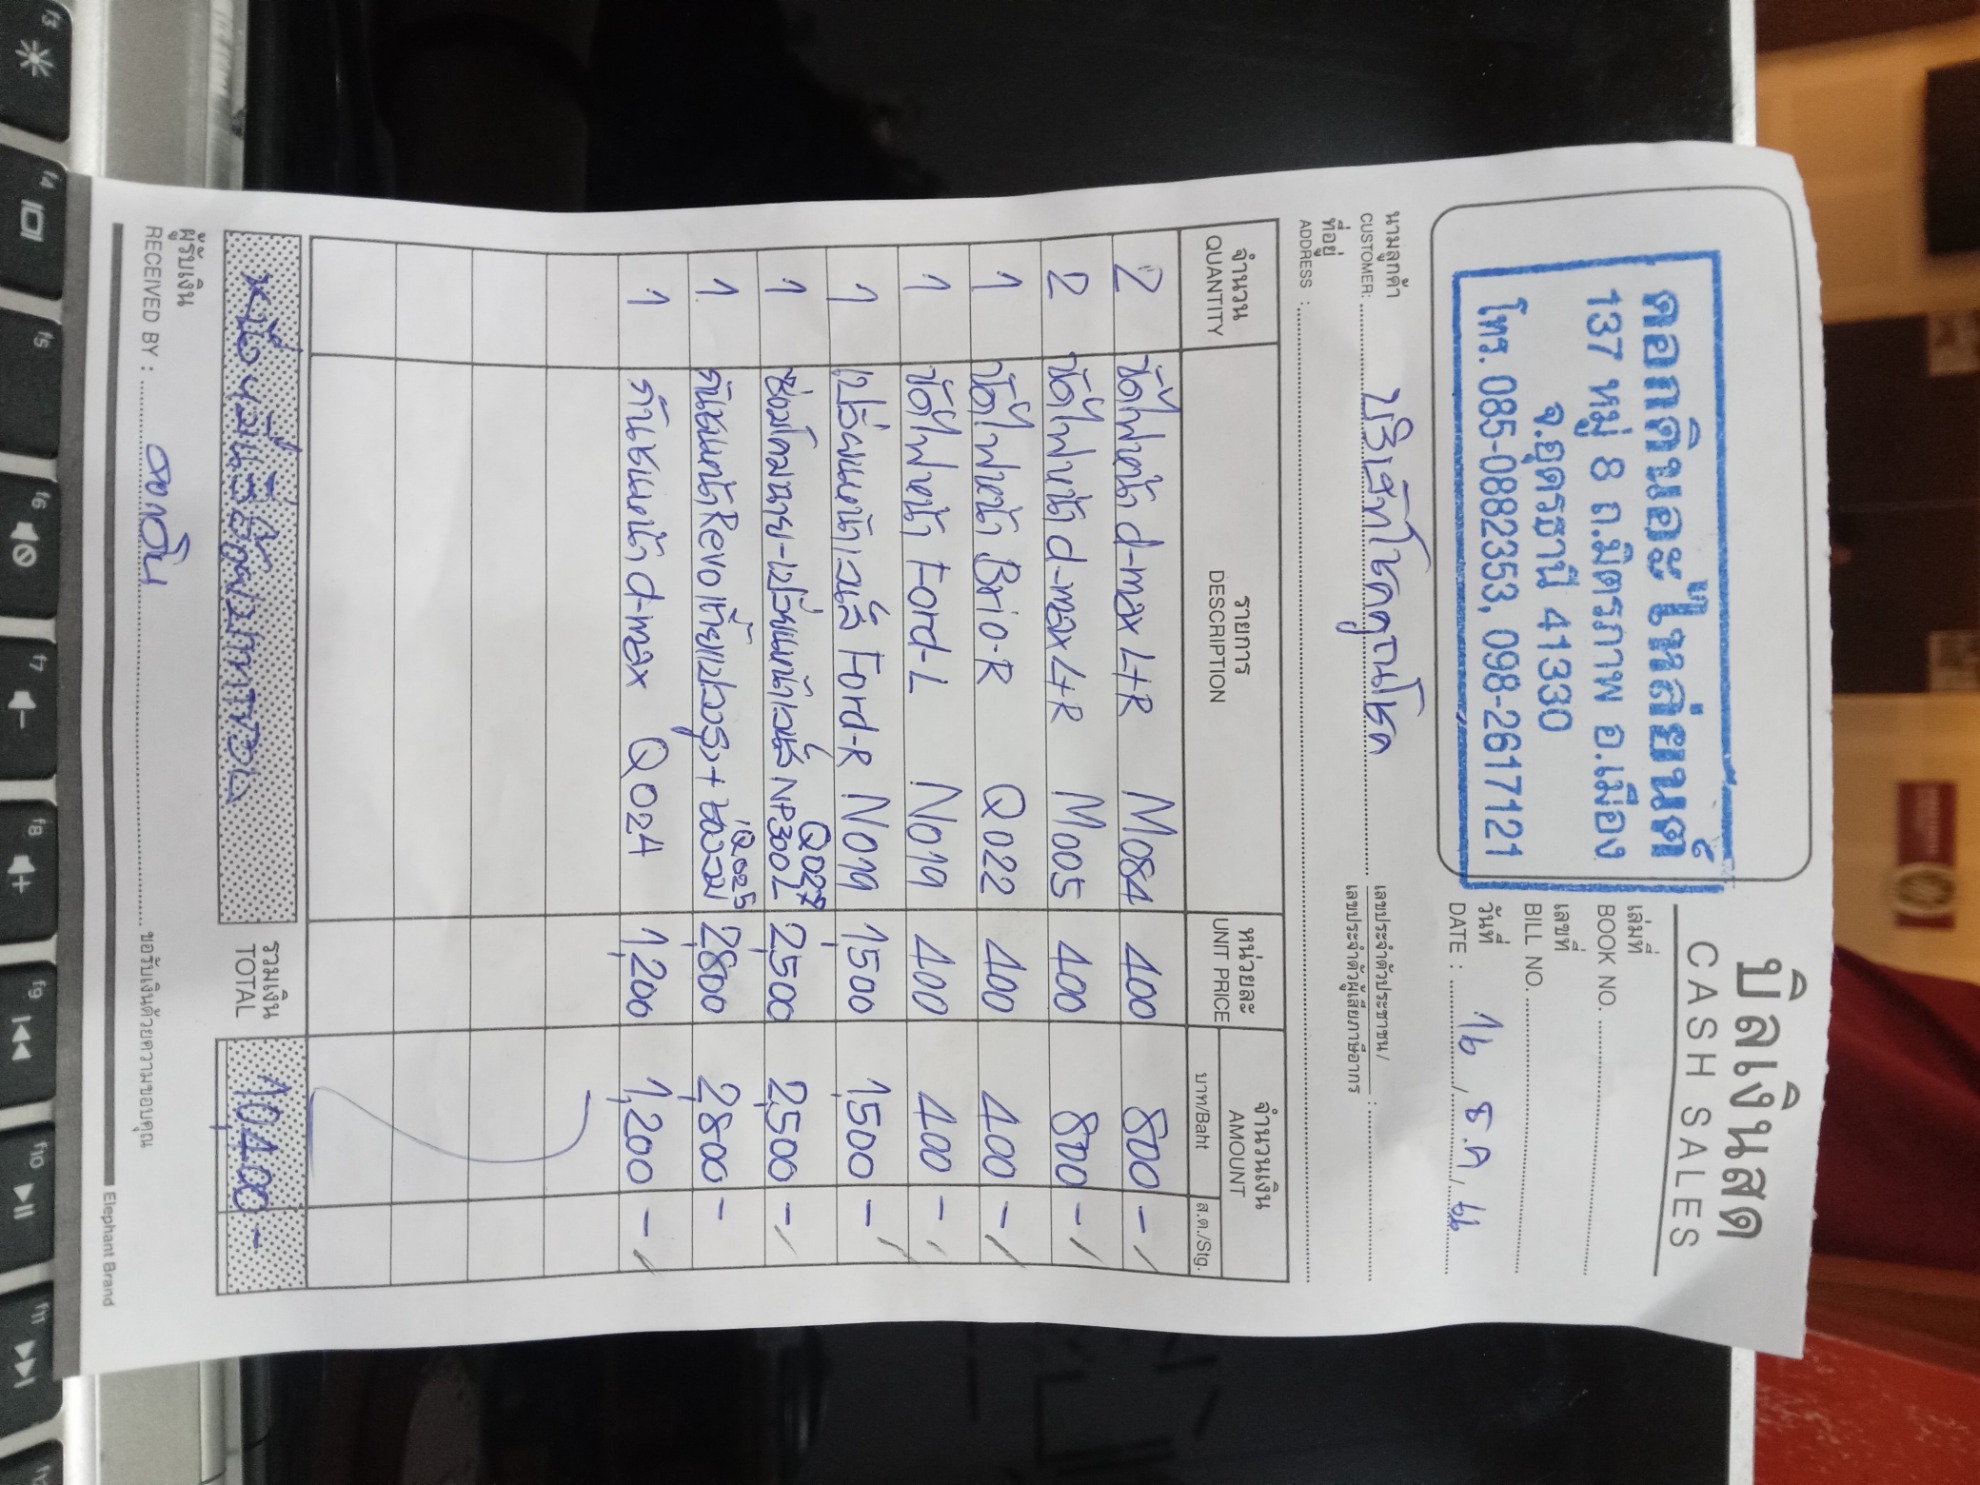 บิลเงินสด
CASH SALES
ดอกดินอะไหล่ยนต์
137 หมู่ 8 ถ.มิตรภาพ อ.เมือง
จ.อุดรธานี 41330
โทร. 085-0882353, 098-2617121
เล่มที่
BOOK NO.
เลขที่
BILL NO.
วันที่
DATE : 16 / ธ.ค / 66
นามลูกค้า
CUSTOMER: บริษัทโชคคูณโชค
เลขประจำตัวประชาชน/
เลขประจำตัวผู้เสียภาษีอากร :
ที่อยู่
ADDRESS :
จำนวน รายการ หน่วยละ จำนวนเงิน
QUANTITY DESCRIPTION UNIT PRICE AMOUNT
บาท/Baht ส.ต./Stg.
2 ขัดไฟหน้า d-max L+R M084 400 800 -
2 ขัดไฟหน้า d-max L+R M005 400 800 -
1 ขัดไฟหน้า Brio-R Q022 400 400 -
1 ขัดไฟหน้า Ford-L N019 400 400 -
1 เปลี่ยนหน้าเลนส์ Ford-R N019 1,500 1,500 -
1 ซ่อมโคมฉาย-เปลี่ยนหน้าเลนส์ NP300L Q027 2,500 2,500 -
1 กันชนหน้า Revo Q025 2,800 2,800 -
1 กันชนหน้า d-max Q024 1,200 1,200 -
หนึ่งหมื่นสี่ร้อยบาทถ้วน
รวมเงิน
TOTAL
10,400 -
ผู้รับเงิน
RECEIVED BY : ดอกดิน
ขอรับเงินด้วยความขอบคุณ
Elephant Brand
f3
f4
f5
f6
f7
f8
f9
f10
f11